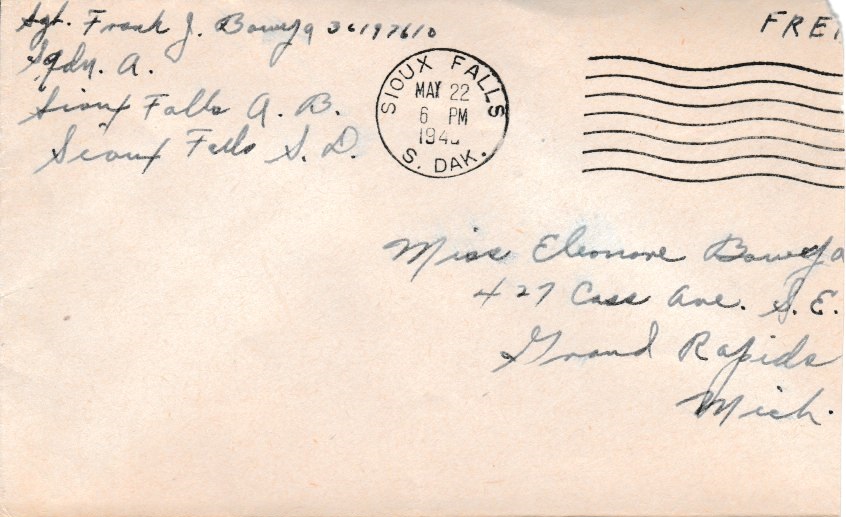 Sgt. Frank J. Bowyja 36197610
Sqdn. A.
Sioux Falls A. B.
Sioux Falls S. D.
FREE
SIOUX FALLS
MAY 22
6 PM
194
S. DAK.
Miss Eleonore Bowyja
427 Cass Ave. S.E.
Grand Rapids
Mich.